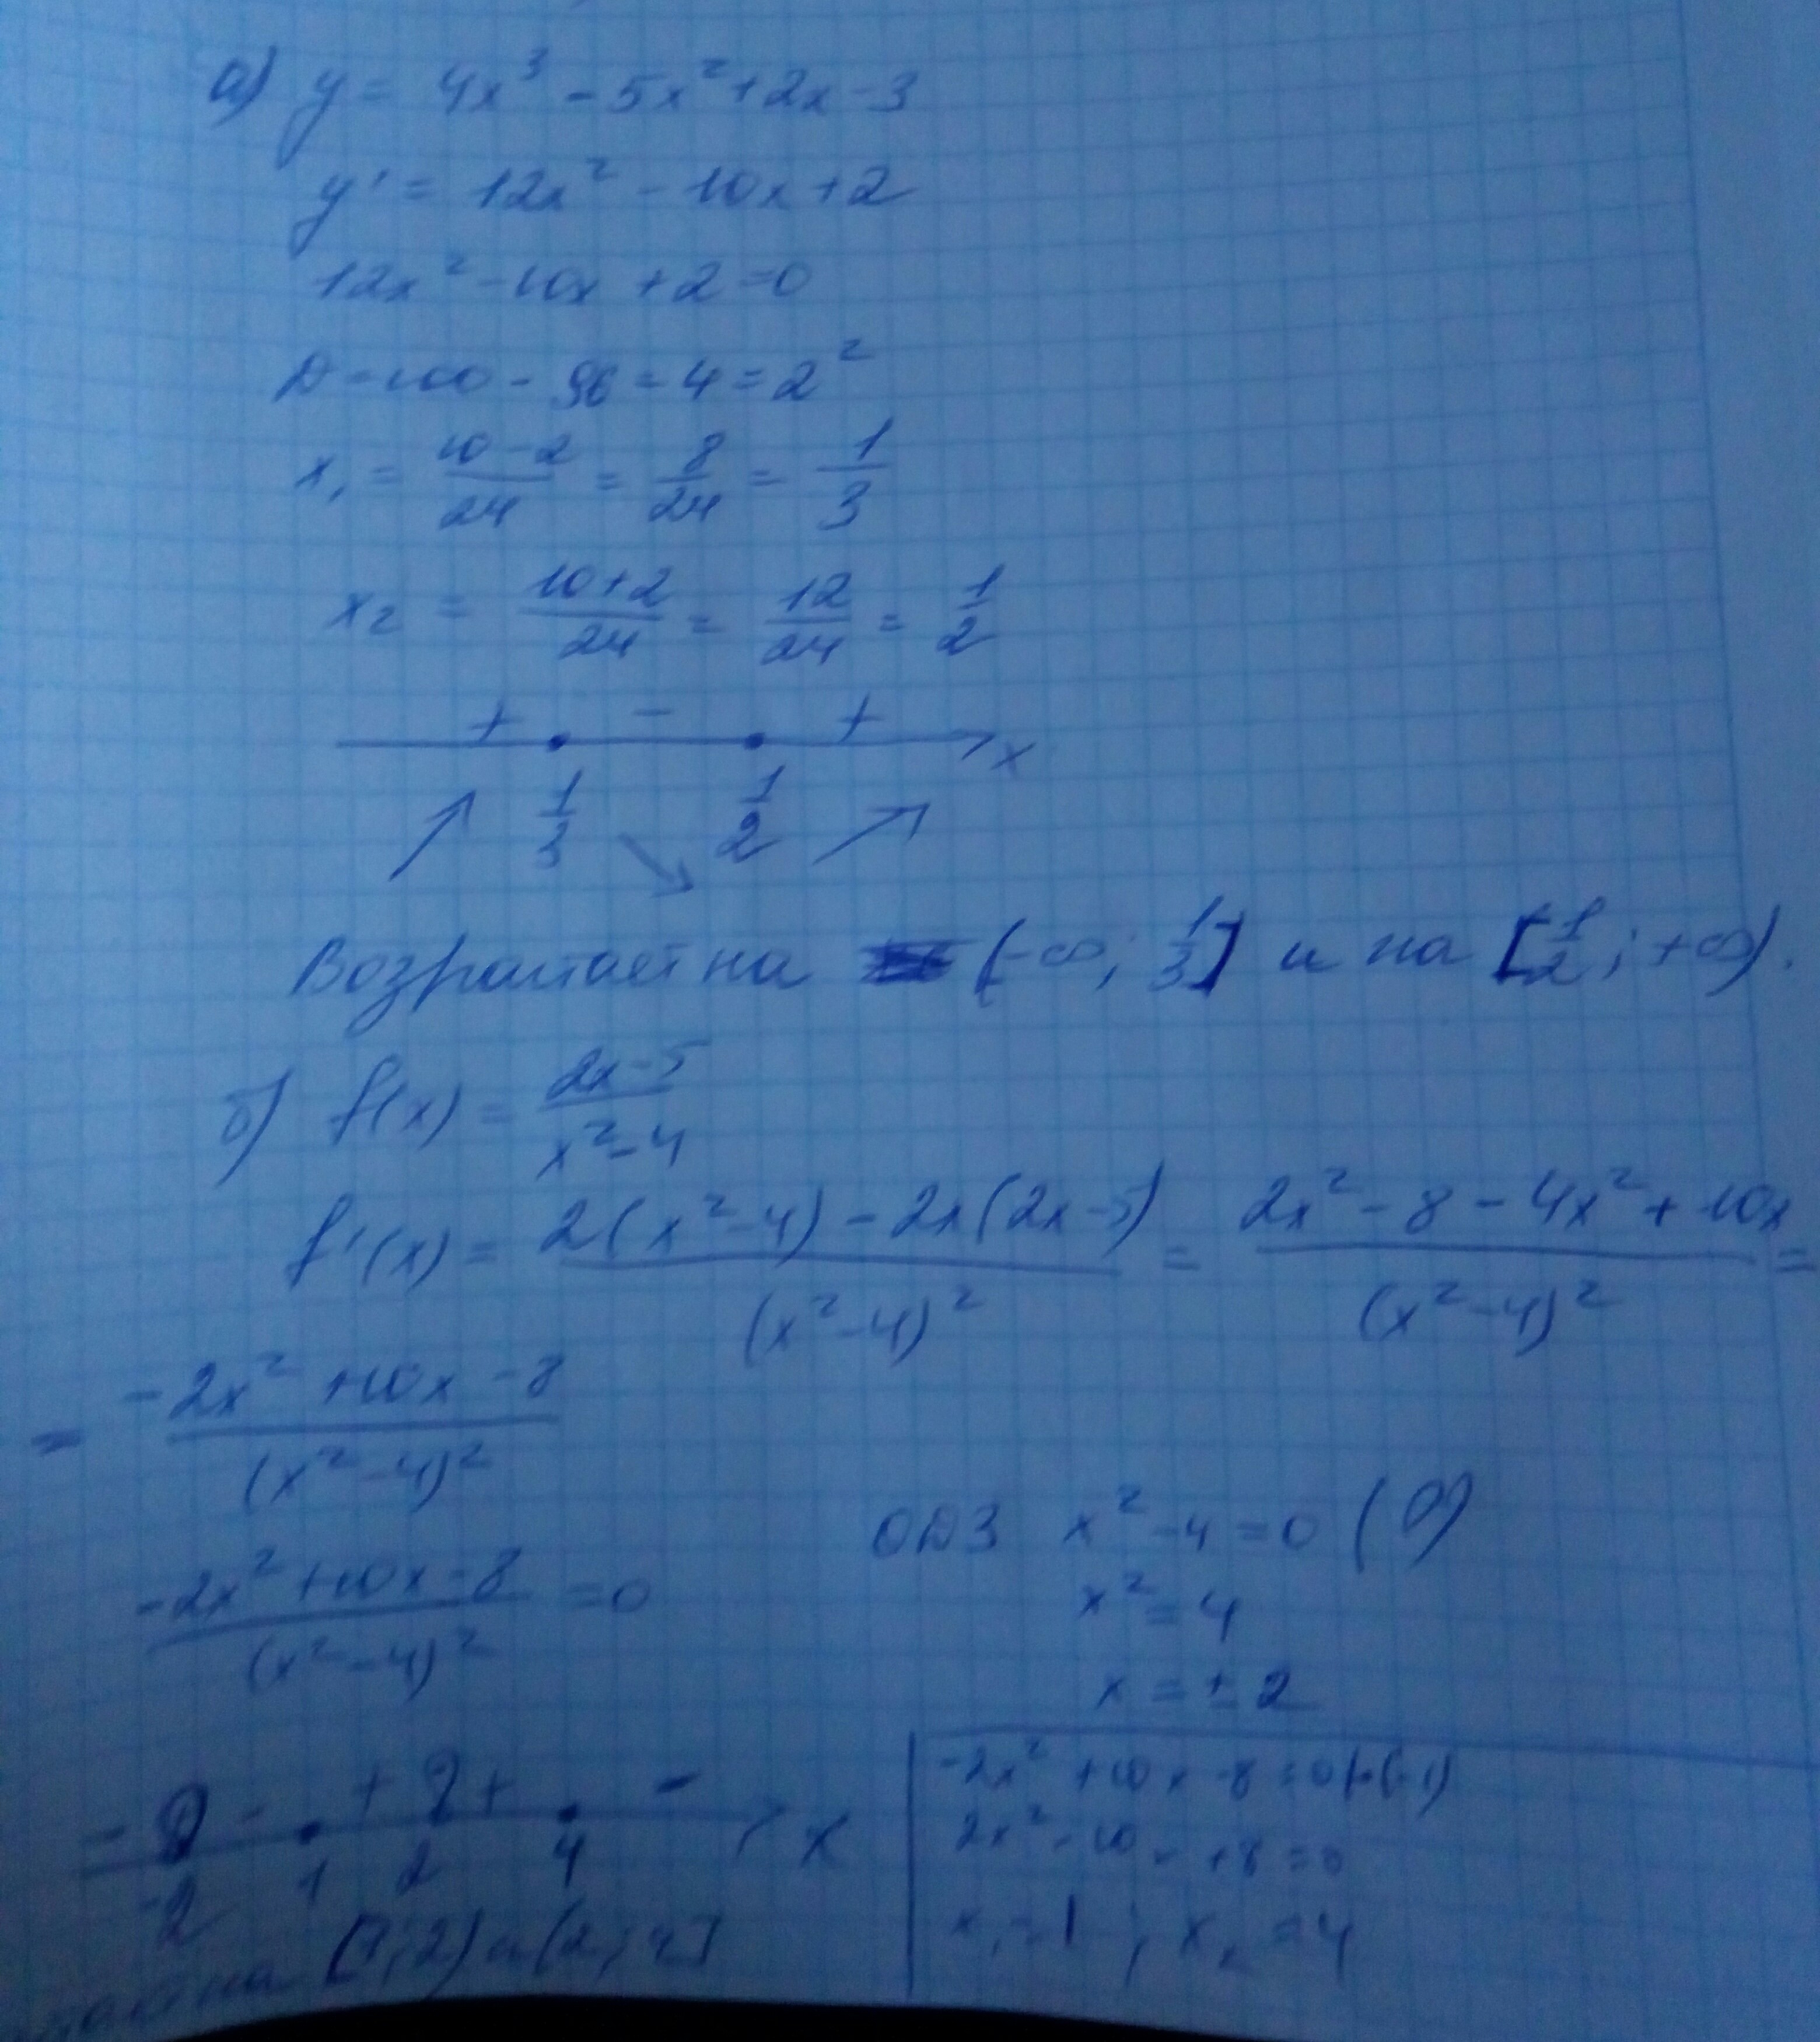 а) y = 4x³ - 5x² + 2x - 3
y' = 12x² - 10x + 2
12x² - 10x + 2 = 0
D = 100 - 96 = 4 = 2²
x₁ = (10 - 2)/24 = 8/24 = 1/3
x₂ = (10 + 2)/24 = 12/24 = 1/2
+ - + x
1/3 1/2
Возрастает на (-∞; 1/3] и на [1/2; +∞).
б) f(x) = (2x - 5)/(x² - 4)
f'(x) = (2(x² - 4) - 2x(2x - 5))/(x² - 4)² = (2x² - 8 - 4x² + 10x)/(x² - 4)² =
= (-2x² + 10x - 8)/(x² - 4)²
(-2x² + 10x - 8)/(x² - 4)² = 0
ОДЗ x² - 4 = 0
x² = 4
x = ± 2
- - + + - x
-2 1 2 4
на [1; 2) и (2; 4]
-2x² + 10x - 8 = 0 |·(-1)
2x² - 10 + 8 = 0
x₁ = 1 ; x₂ = 4